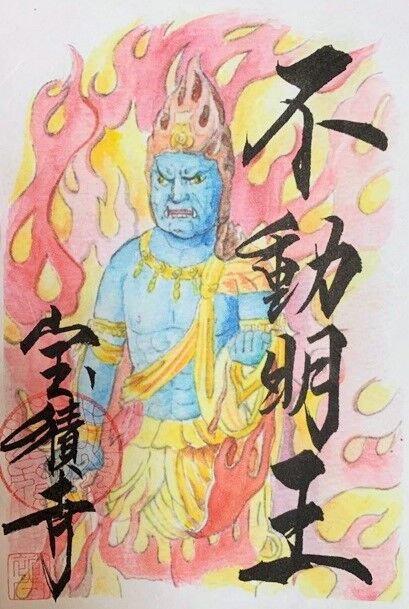 不動明王
宝積寺